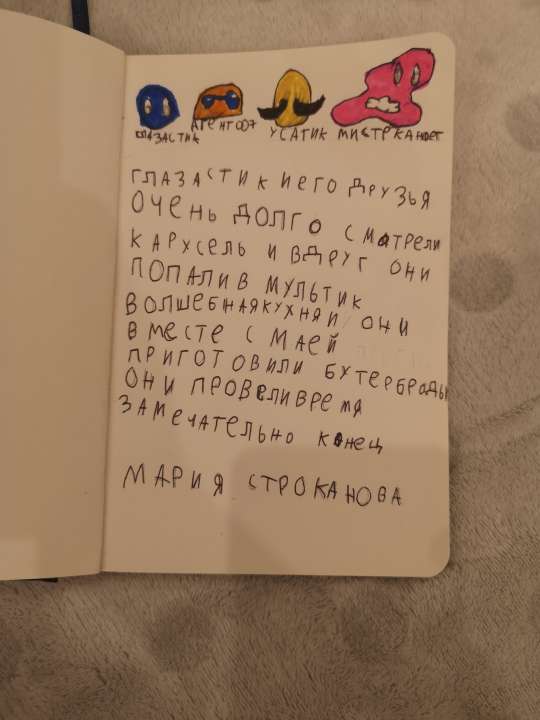 ГЛАЗАСТИК АГЕНТ007 УСАТИК МИСТЕР КАНФЕТ
ГЛАЗАСТИК ИЕГО ДРУЗЬЯ
ОЧЕНЬ ДОЛГО СМАТРЕЛИ
КАРУСЕЛЬ И ВДРУГ ОНИ
ПОПАЛИ В МУЛЬТИК
ВОЛШЕБНАЯКУХНЯ И ОНИ
ВМЕСТЕ С МАЕЙ
ПРИГОТОВИЛИ БУТЕРБРАДЫ
ОНИ ПРОВЕЛИВРЕМЯ
ЗАМЕЧАТЕЛЬНО КОНЕЦ
МАРИЯ СТРОКАНОВА